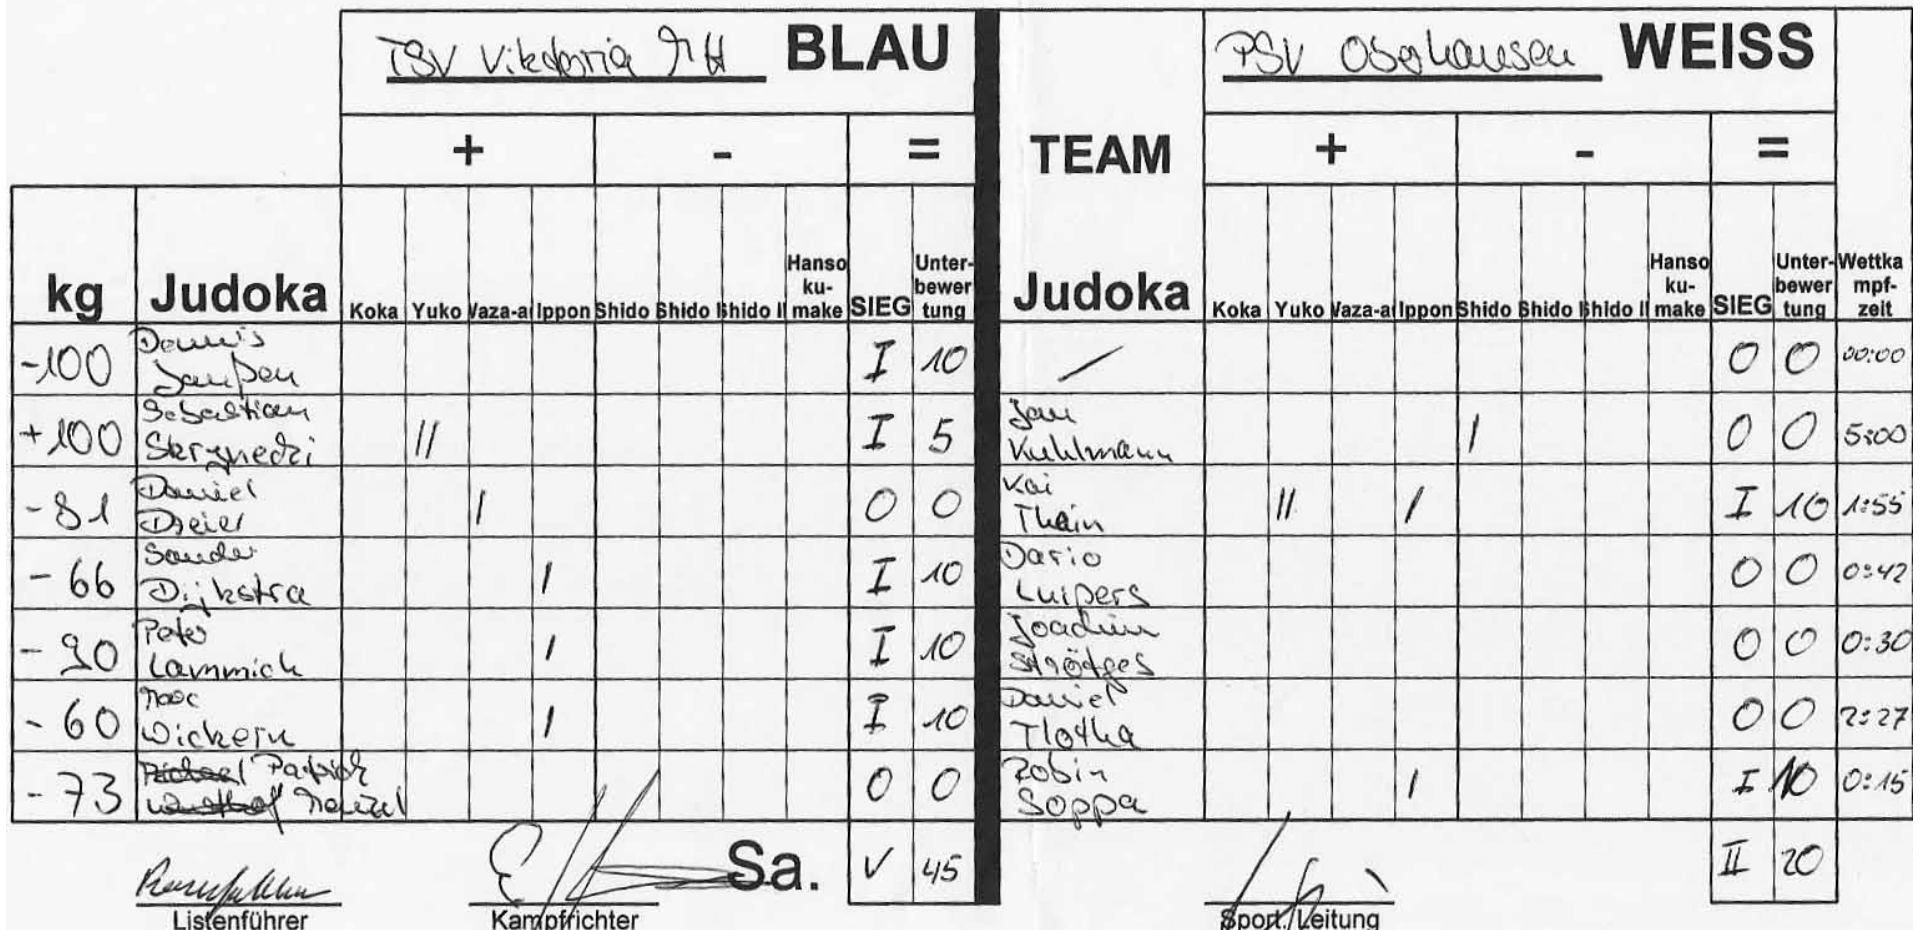 TSV Viktoria MH BLAU PSV Oberhausen WEISS
+ - = TEAM + - =
kg Judoka Koka Yuko Waza-a Ippon Shido Shido I Shido II Hanso ku- make SIEG Unter- bewer tung Judoka Koka Yuko Waza-a Ippon Shido Shido I Shido II Hanso ku- make SIEG Unter- bewer tung Wettka mpf- zeit
-100 Dennis Janßen I 10 / 0 0 00:00
+100 Sebastian II I 5 Jan Kuhlmann I 0 0 5:00
-81 Daniel Dreier I 0 0 Kai Thain II I I 10 1:55
-66 Sander Dijkstra I I 10 Dario Luipers 0 0 0:42
-90 Peter Lammich I I 10 Joachim Strötges 0 0 0:30
-60 Wickern I I 10 Daniel Tlotha 0 0 2:27
-73 Patrick 0 0 Robin Soppa I I 10 0:15
Sa. V 45 II 20
Listenführer Kampfrichter Sport./Leitung